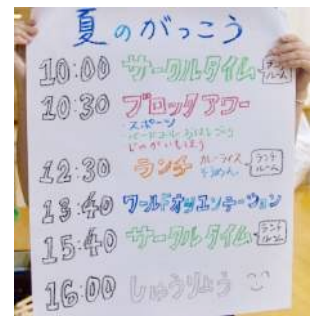 夏のがっこう
10:00 サークルタイム ランチルーム
10:30 ブロックアワー
スポーツ
12:30 ランチ カレーライス そうめん ランチルーム
13:40 ワールドオリエンテーション
15:40 サークルタイム ランチルーム
16:00 しゅうりょう